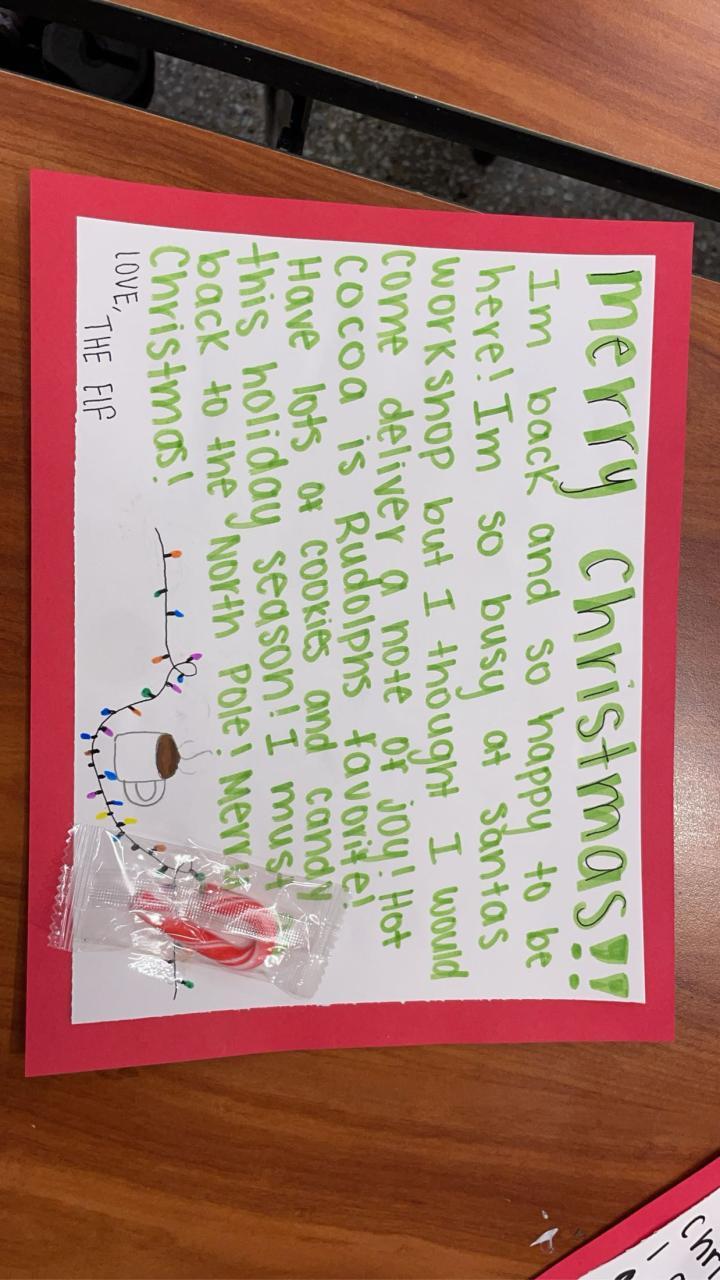 Merry Christmas!!
Im back and so happy to be
here! Im so busy at Santas
workshop but I thought I would
come deliver a note of joy! Hot
cocoa is Rudolphs favorite!
Have lots of cookies and candy
this holiday season! I must
back to the North Pole! Merry
Christmas!
LOVE, THE ElF